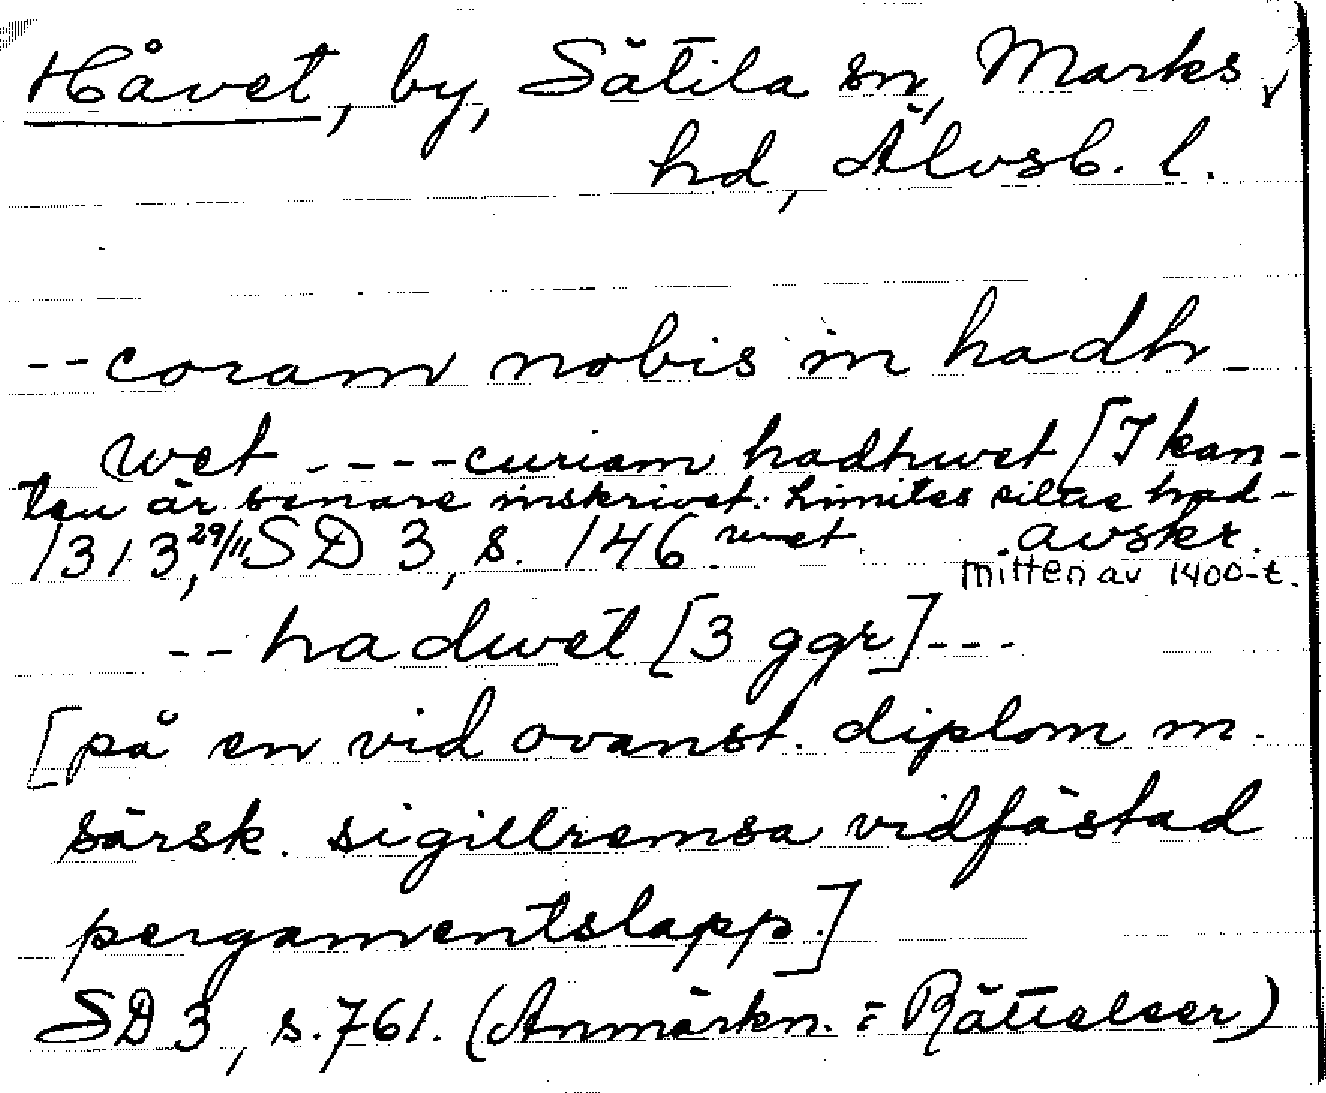 Håvet, by, Sätila sn, Marks
hd, Älvsb. l.
--coram nobis in hadh-
wet ----curiam hadhwet [I kan-
ten är senare inskrivet: Limites silae had-
1313, 29/11 SD 3, s. 146. wet. avskr.
mitten av 1400-t.
--hadwet [3 ggr]---
[på en vid ovanst. diplom m.
särsk. sigillremsa vidfästad
pergamentslapp.]
SD 3, s. 761. (Anmärkn. = Rättelser)